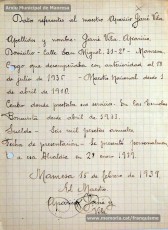 Arxiu Municipal de Manresa
Datos referentes al maestro Aparicio Jarné Vila
Apellidos y nombre: Jarné Vila, Aparicio
Domicilio - Calle San Miguel, 33-2º - Manresa
Cargo que desempeñaba con anterioridad al 18
de julio de 1936 - Maestro Nacional desde 1
de abril de 1910.
Centro donde prestaba sus servicios - En las Escuelas
desde abril de 1933.
Sueldo - Seis mil pesetas anuales
Fecha de presentación - Se presentó personalmente
a esa Alcaldía en 29 enero 1939.
Manresa 15 de febrero de 1939.
El Maestro
Aparicio Jarné
Vila